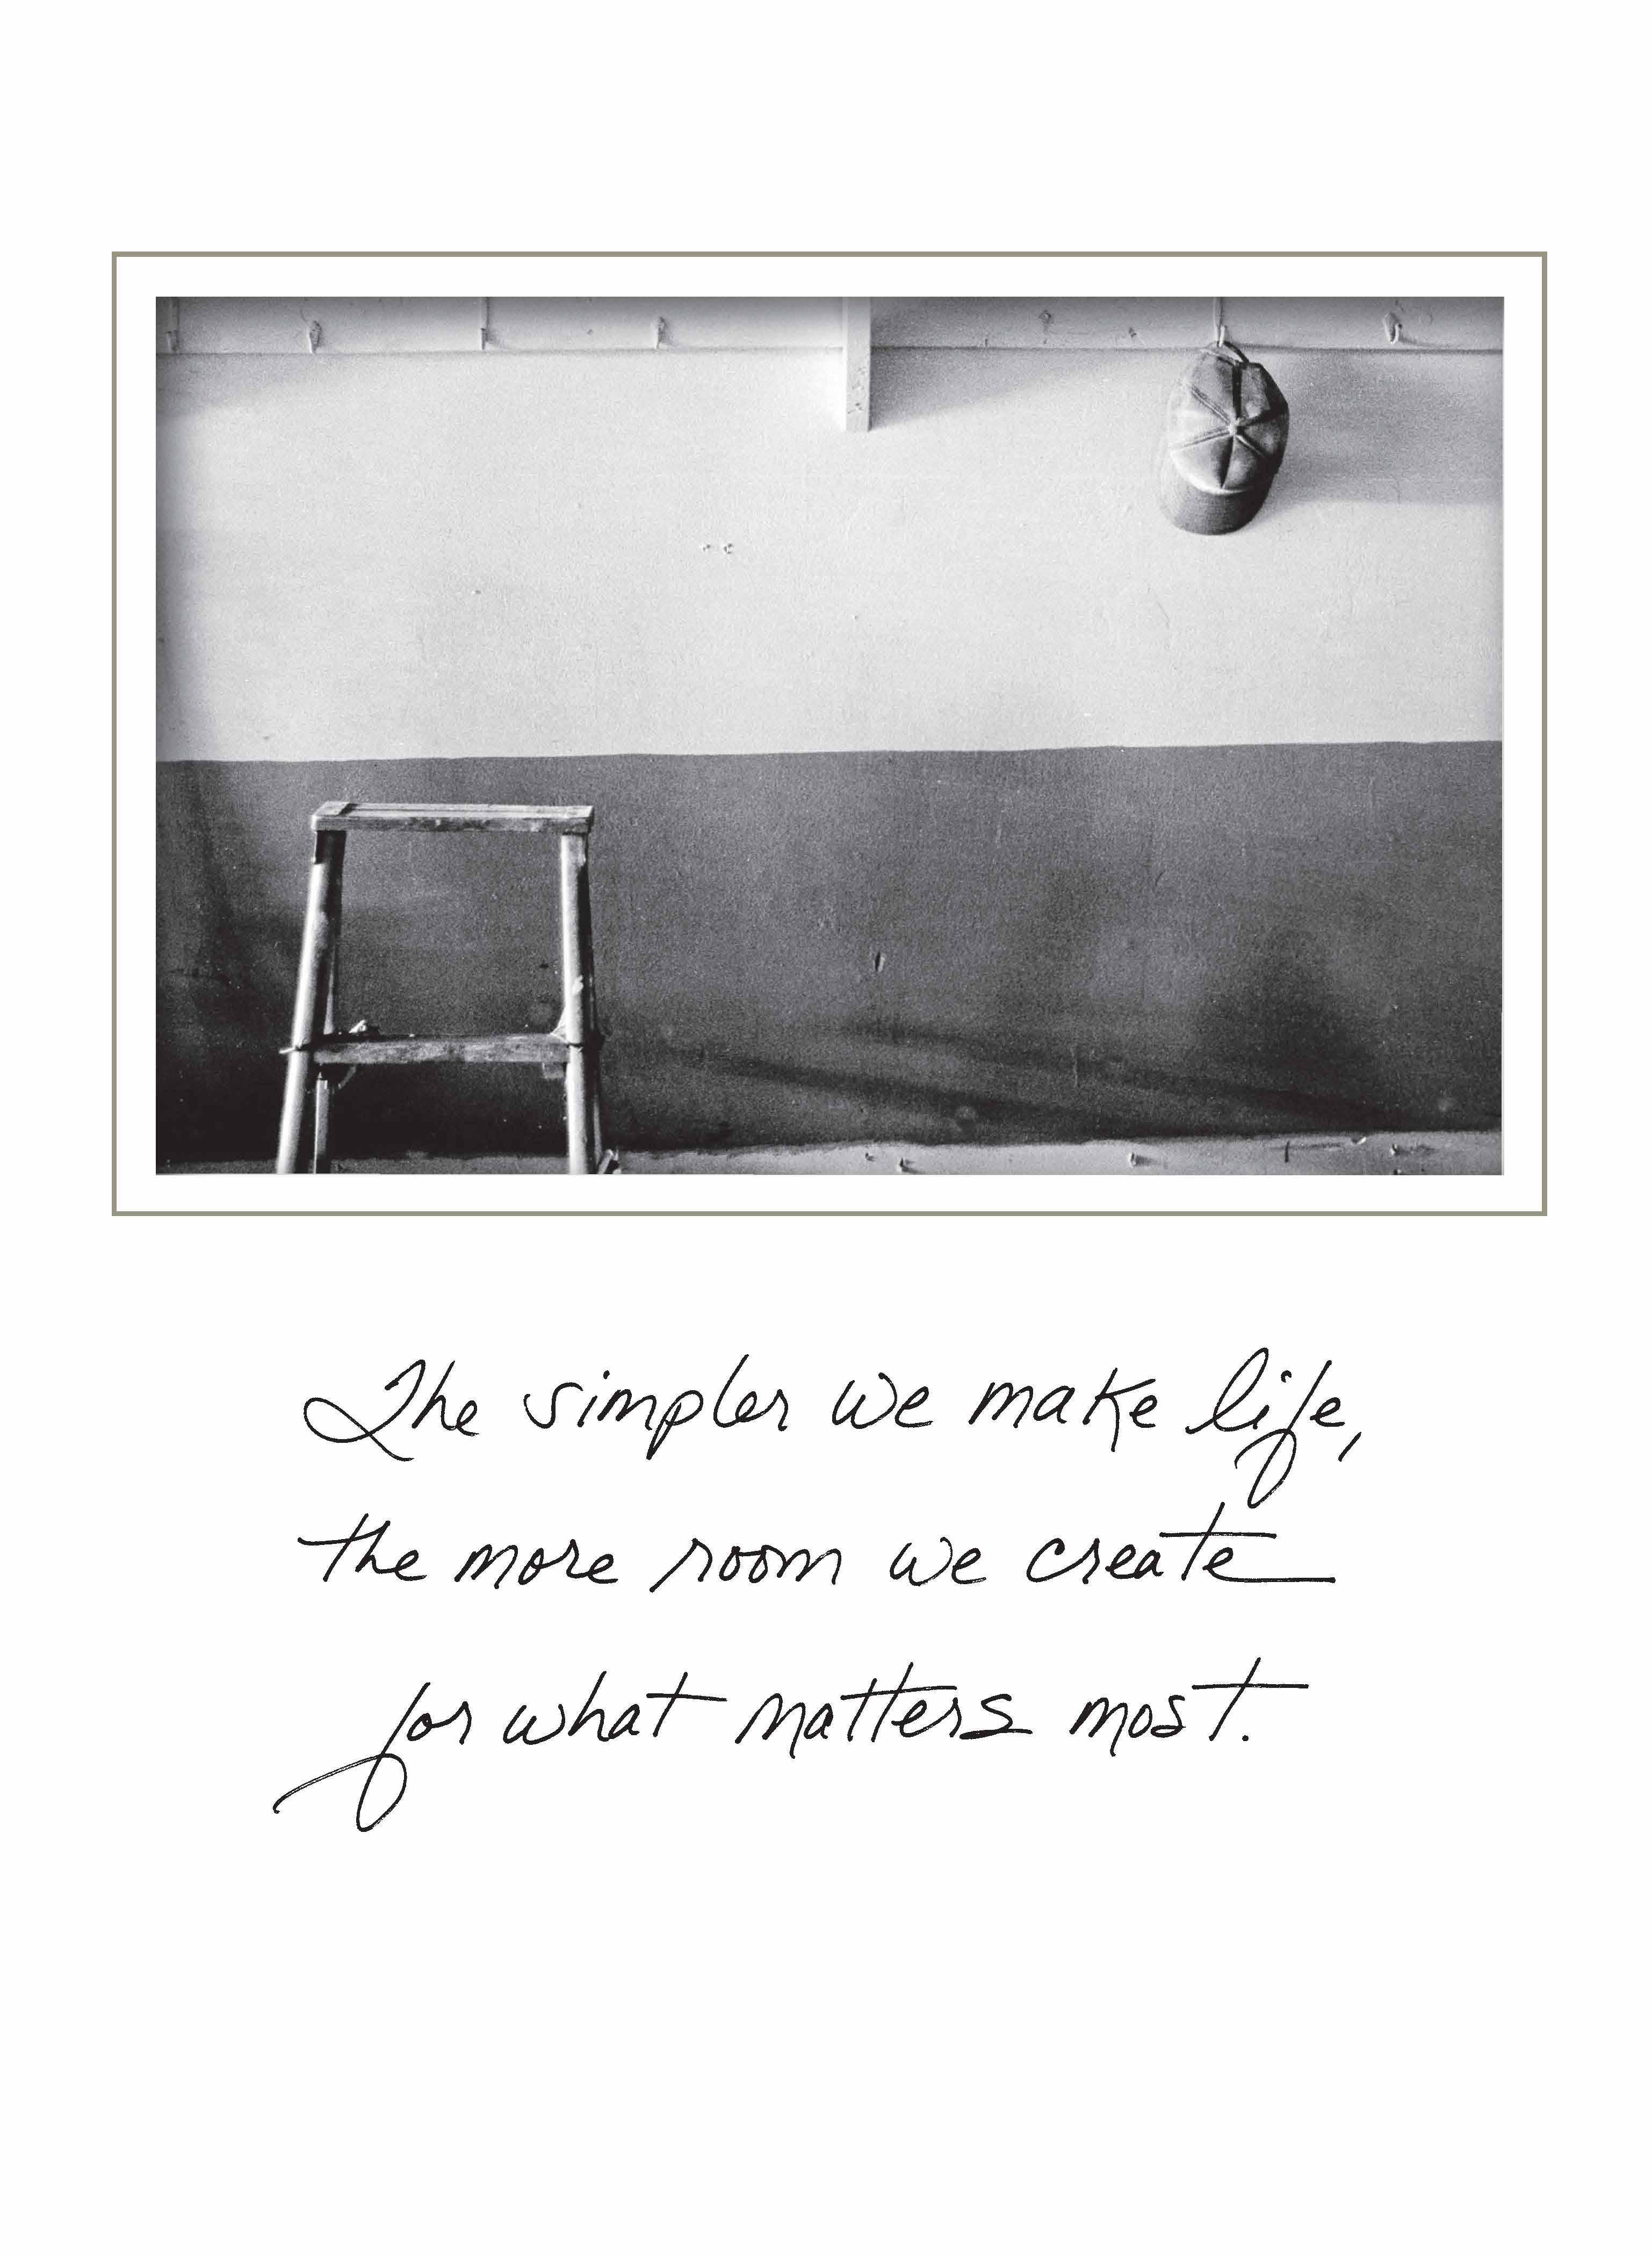 The simpler we make life,
the more room we create
for what matters most.